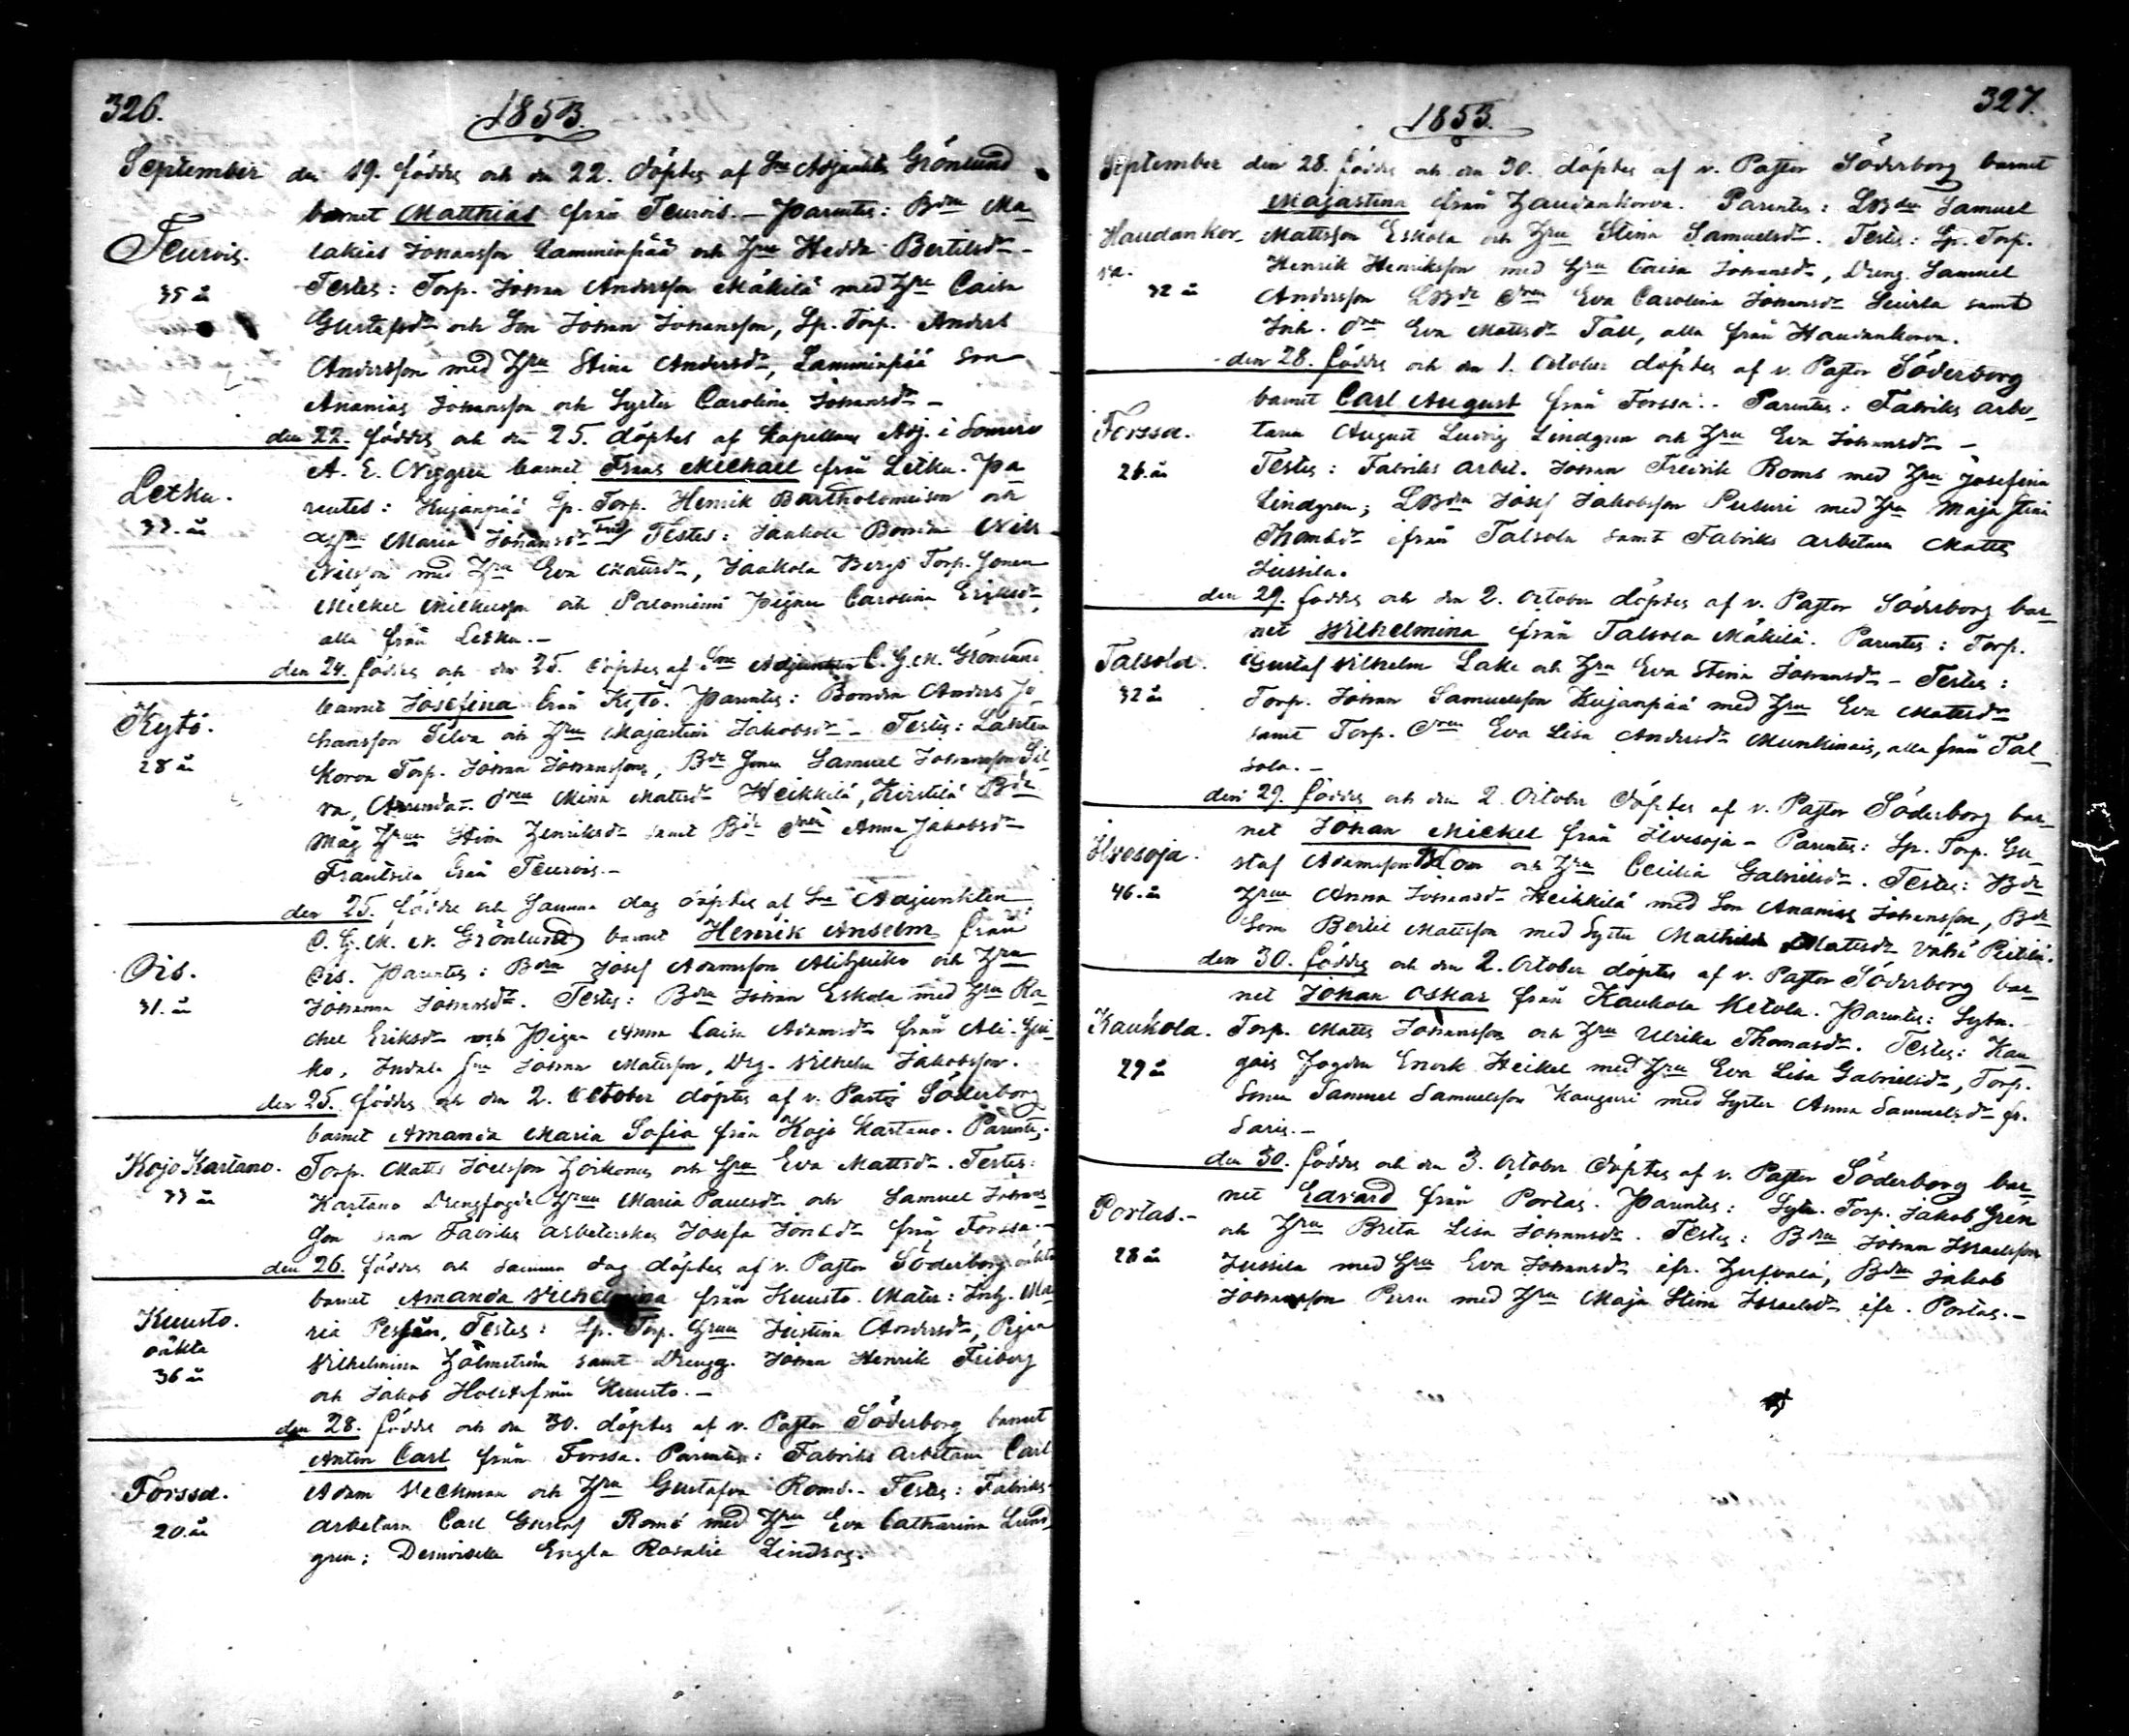 326.
1853.
September den 19. föddes och den 22. döptes af Hr Adjunkten Grönlund
barnet Matthias från Teurois. - Parentes: Bdn Ma-
Teurois. lakias Johansson Lamminpää och Hru Hedda Bertilsdr -
35 år Testes: Torp. Johan Andersson Mäkilä med Hru Caisa
Gustafsdr och Son Johan Johansson, Sp. Torp. Anders
Andersson med Hru Stina Andersdr, Lamminpää Son
Ananias Johansson och Syster Carolina Johansdr -
den 22. föddes och den 25. döptes af Kapellans Adj. i Somero
A. E. Nygren barnet Frans Michael från Letku. Pa-
Letku. rentes: Kujanpää Sp. Torp. Henrik Bartholomeison och
37. år Maria Johansdr Testes: Jaakola Bonden Nils
Nilsson med Hru Eva, Jaakola Bergs Torp. Sonen
Mickel Mickelsson och Palomänni Pigan Carolina Eriksdr,
alla från Letku. -
den 24. föddes och den 25. döptes af Hr Adjunkten C. G. M. Grönlund
barnet Josefina från Kytö. Parentes: Bonden Anders Jo-
Kytö. hansson Silva och Hru Majastina Jakobsdr - Testes: Lahten
28 år korva Torp. Johan Johansson, Bde Sonen Samuel Johansson Sil-
va, Arrenda- dren Mina Mattsdr Heikkilä, Kirstilä Bde
måg Hrun Stina Henriksdr samt Bde dren Anna Jakobsdr
Frantsila från Teurois. -
den 25. föddes och samma dag döptes af Hr Adjunkten
C. G. M. Grönlund barnet Henrik Anselm från
Ois. Ois. Parentes: Bdn Josef Adamsson Aliheiko och Hru
31. år Johanna Johansdr. Testes: Bdn Johan Eskola med Hru Ra-
chel Eriksdr och Pigan Anna Caisa Adamsdr från Ali-Hei-
ko, Johan Mattsson, Drg. Vilhelm Jakobsson.
den 25. föddes och den 2. October döptes af v. Pastor Söderborg
barnet Amanda Maria Sofia från Kojo Kartano. Parentes:
Kojo Kartano. Torp. Matts Joelsson Hoikonen och Hru Eva Mattsdr. Testes:
33 år Kartano Drengfogde Hrun Maria Paulsdr och Samuel Johans
Son samt Fabriks arbeterskan Josefa Jonasdr från Forssa. -
den 26. föddes och samma dag döptes af v. Pastor Söderborg oäkta
barnet Amanda Vilhelmina från Kuusto. Mater: Inh. Ma-
Kuusto. ria Testes: Sp. Torp. Hrun Justina Andersdr, Pigan
oäkta Vilhelmina Holmström samt Drengg. Johan Henrik Friberg
36 år och Jakob Holst från Kuusto. -
den 28. föddes och den 30. döptes af v. Pastor Söderborg barnet
Anton Carl från Forssa. Parentes: Fabriks arbetaren Carl
Forssa. Adam Veckman och Hru Gustafva Roms. - Testes: Fabriks-
20. år arbetaren Carl Gustaf Roms med Hru Eva Catharina Lind-
gren; Demoiselle Engla Rosalie
327.
1853.
September den 28. föddes och den 30. döptes af v. Pastor Söderborg barnet
Majastina från Haudankorva. Parentes: LBdn Samuel
Haudankor- Mattsson Eskola och Hru Stina Samuelsdr. Testes: Sp. Torp.
va. Henrik Henriksson med Hru Caisa Johansdr, Dreng. Samuel
32 år Andersson LBde dren Eva Carolina Johansdr Seurla samt
Inh. dren Eva Mattsdr Tall, alla från Haudankorva.
den 28. föddes och den 1. October döptes af v. Pastor Söderborg
barnet Carl August från Forssa. - Parentes: Fabriks arbe-
Forssa. taren August Ludvig Lindgren och Hru Eva Johansdr -
26. år Testes: Fabriks arbet. Johan Fredrik Roms med Hru Josefina
Lindgren; LBdn Josef Jakobsson Puburi med Hru Maja Stina
Thomasdr ifrån Talsola samt Fabriks arbetaren Matts
Jussila.
den 29. föddes och den 2. October döptes af v. Pastor Söderborg bar-
net Wilhelmina från Talsola Mäkilä. Parentes: Torp.
Talsola. Gustaf Vilhelm Lake och Hru Eva Stina Johansdr - Testes:
32 år Torp. Johan Samuelsson Kujanpää med Hru Eva Mattsdr
samt Torp. dren Eva Lisa Andersdr Munkinais, alla från Tal-
sola. -
den 29. föddes och den 2. October döptes af v. Pastor Söderborg bar-
net Johan Mickel från Ilvesoja - Parentes: Sp. Torp. Gu-
Ilvesoja. staf Adamsson Blom och Hru Cecilia Gabrielsdr. Testes: Bde
46. år Hrun Anna Johansdr Heikkilä med Son Ananias Johansson, Bde
Son Bertil Mattsson med Syster Mathilda Mattsdr Vähä Pietilä.
den 30. föddes och den 2. October döptes af v. Pastor Söderborg bar-
net Johan Oskar från Kaukola Ketola. Parentes: Sytn.
Kaukola. Torp. Matts Johansson och Hru Ulrika Thomasdr. Testes: Kau-
29 år gais Fogden Enock Heikel med Hru Eva Lisa Gabrielsdr, Torp.
Sonen Samuel Samuelsson Kauguri med Syster Anna Samuelsdr fr.
Saris. -
den 30. föddes och den 3. October döptes af v. Pastor Söderborg bar-
net Edvard från Portas. Parentes: Sytn. Torp. Jakob Grén
Portas. - och Hru Brita Lisa Johansdr. Testes: Bdn Johan Israelsson
28 år Jussila med Hru Eva Johansdr ifr. Bdn Jakob
Johansson Perra med Hru Maja Stina Israelsdr ifr. Portas. -